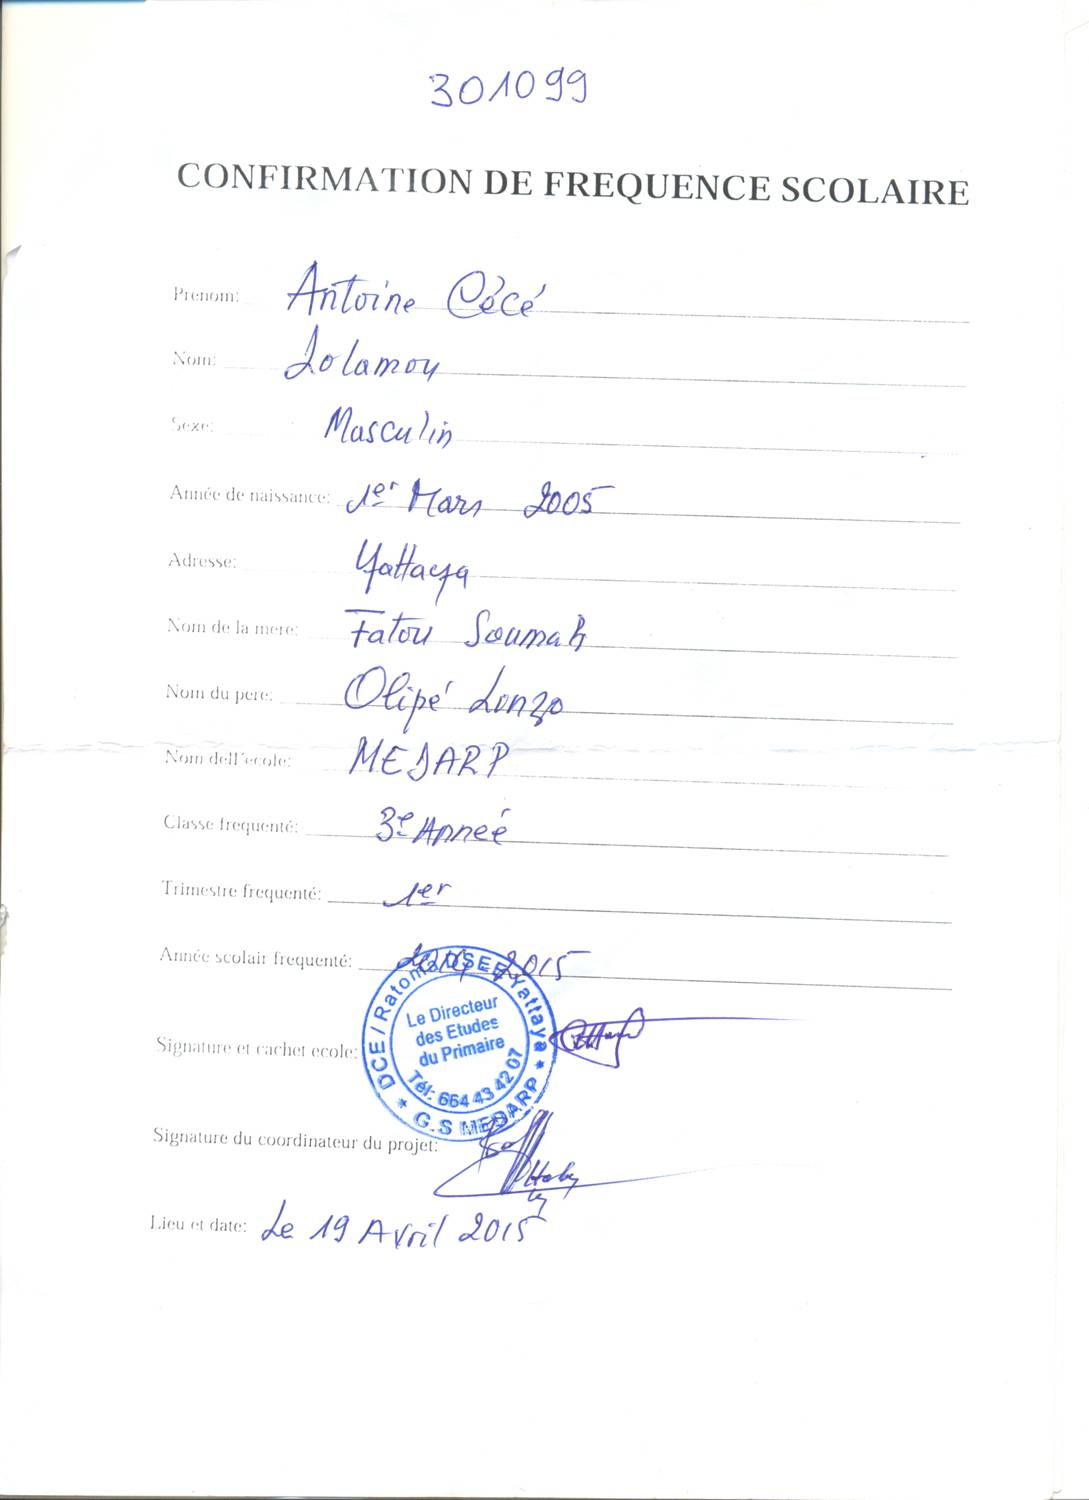 301099
CONFIRMATION DE FREQUENCE SCOLAIRE
Prenom: Antoine Cécé
Nom: Lolamou
Sexe: Masculin
Année de naissance: 1er Mars 2005
Adresse: Yattaya
Nom de la mere: Fatou Soumah
Nom du pere: Olipé Lonzo
Nom dell'ecole: MEDARP
Classe frequenté: 3e Anneé
Trimestre frequenté: 1er
Année scolair frequenté: 2015
Signature et cachet ecole:
DCE / Ratoma DSEE Yattaya
Le Directeur
des Etudes
du Primaire
Tél: 664 43 42 07
G.S MEDARP
Signature du coordinateur du projet:
Lieu et date: Le 19 Avril 2015